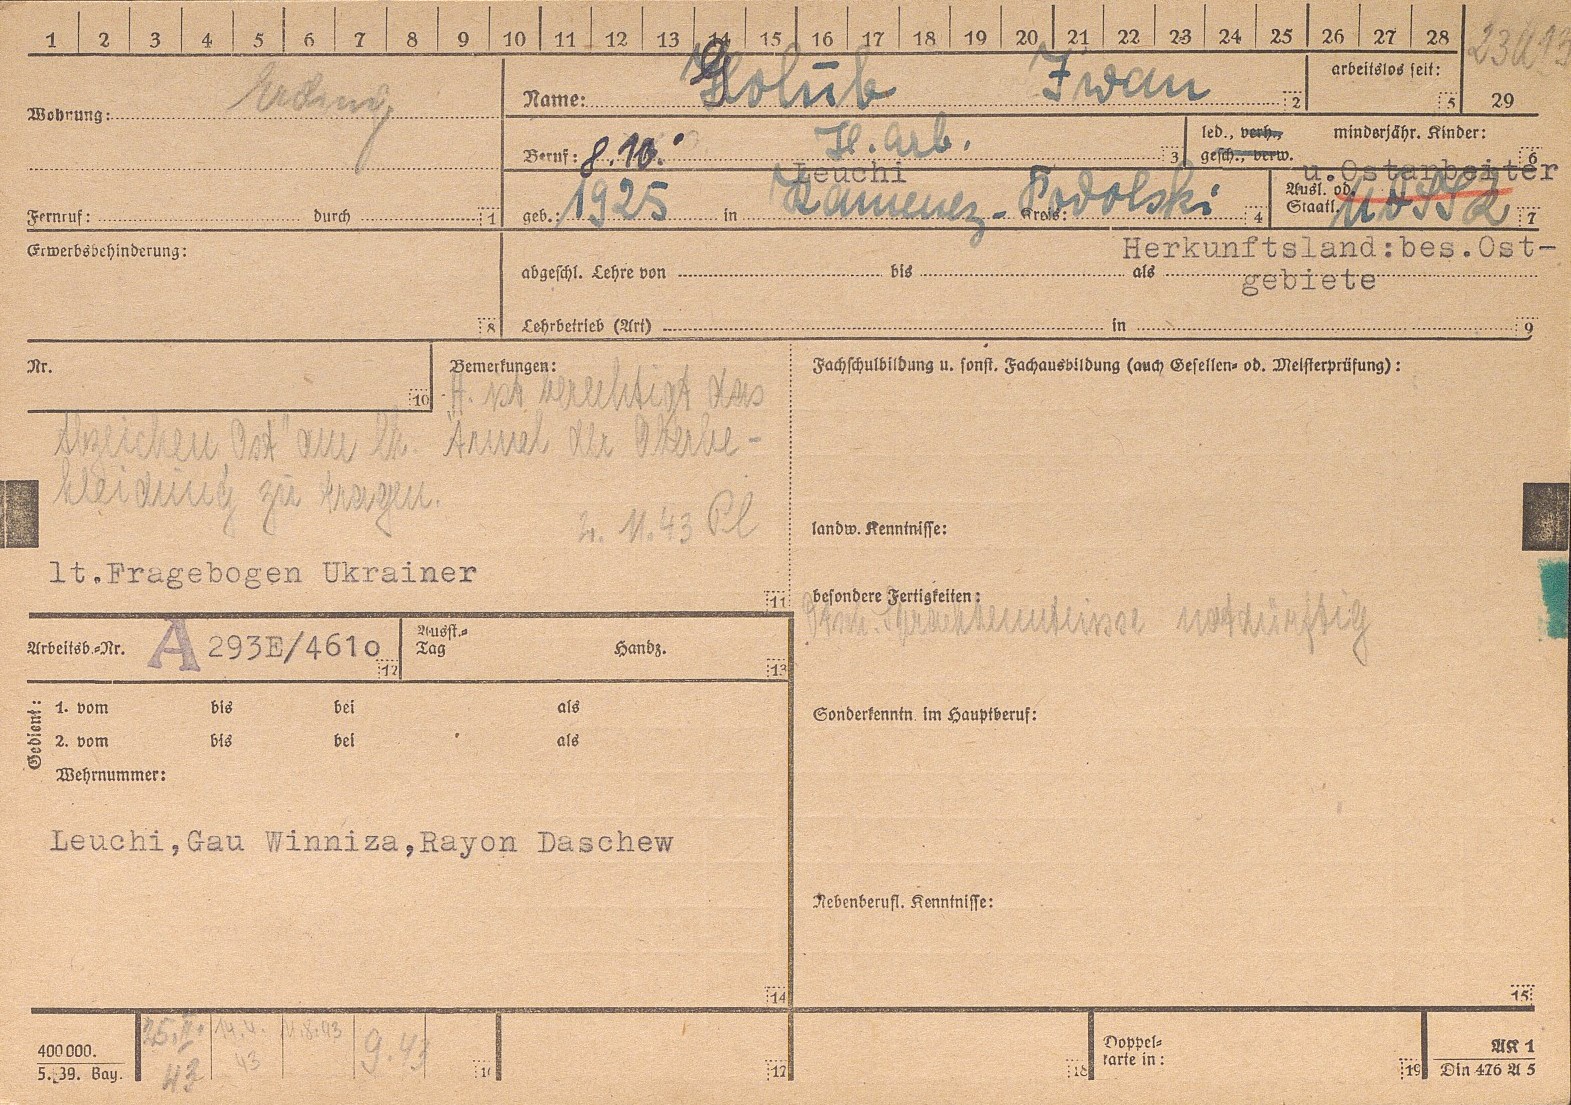 1 2 3 4 5 6 7 8 9 10 11 12 13 14 15 16 17 18 19 20 21 22 23 24 25 26 27 28
Wohnung: Erding
Name: Golub Iwan 2
arbeitslos seit: 5
29
Beruf: H. Arb. 3
8.10.
led., verh., gesch., verw.
minderjähr. Kinder: 6
Fernruf: durch 1
Leuchi
geb.: 1925 in Kamenez- Kreis: Podolski 4
u.Ostarbeiter
Ausl. od. Staatl. UdSSR 7
Erwerbsbehinderung: 8
Herkunftsland:bes.Ost-
gebiete
abgeschl. Lehre von bis als
Lehrbetrieb (Art) in 9
Nr. 10
Bemerkungen: H. ist berechtigt das
Abzeichen "Ost" am lk. Ärmel der Oberbe-
kleidung zu tragen.
2. 11.43 Pl
lt.Fragebogen Ukrainer
11
Fachschulbildung u. sonst. Fachausbildung (auch Gesellen- od. Meisterprüfung):
landw. Kenntnisse:
besondere Fertigkeiten:
Dtsch. Sprachkenntnisse notdürftig
Sonderkenntn. im Hauptberuf:
Nebenberufl. Kenntnisse:
15
Arbeitsb.-Nr. A 293E/4610 12
Ausst.-Tag Handz. 13
Gedient:
1. vom bis bei als
2. vom bis bei als
Wehrnummer:
Leuchi,Gau Winniza,Rayon Daschew
14
400 000.
5. 39. Bay.
9.43
17
18
Doppel-
karte in: 19
AK 1
Din 476 A 5